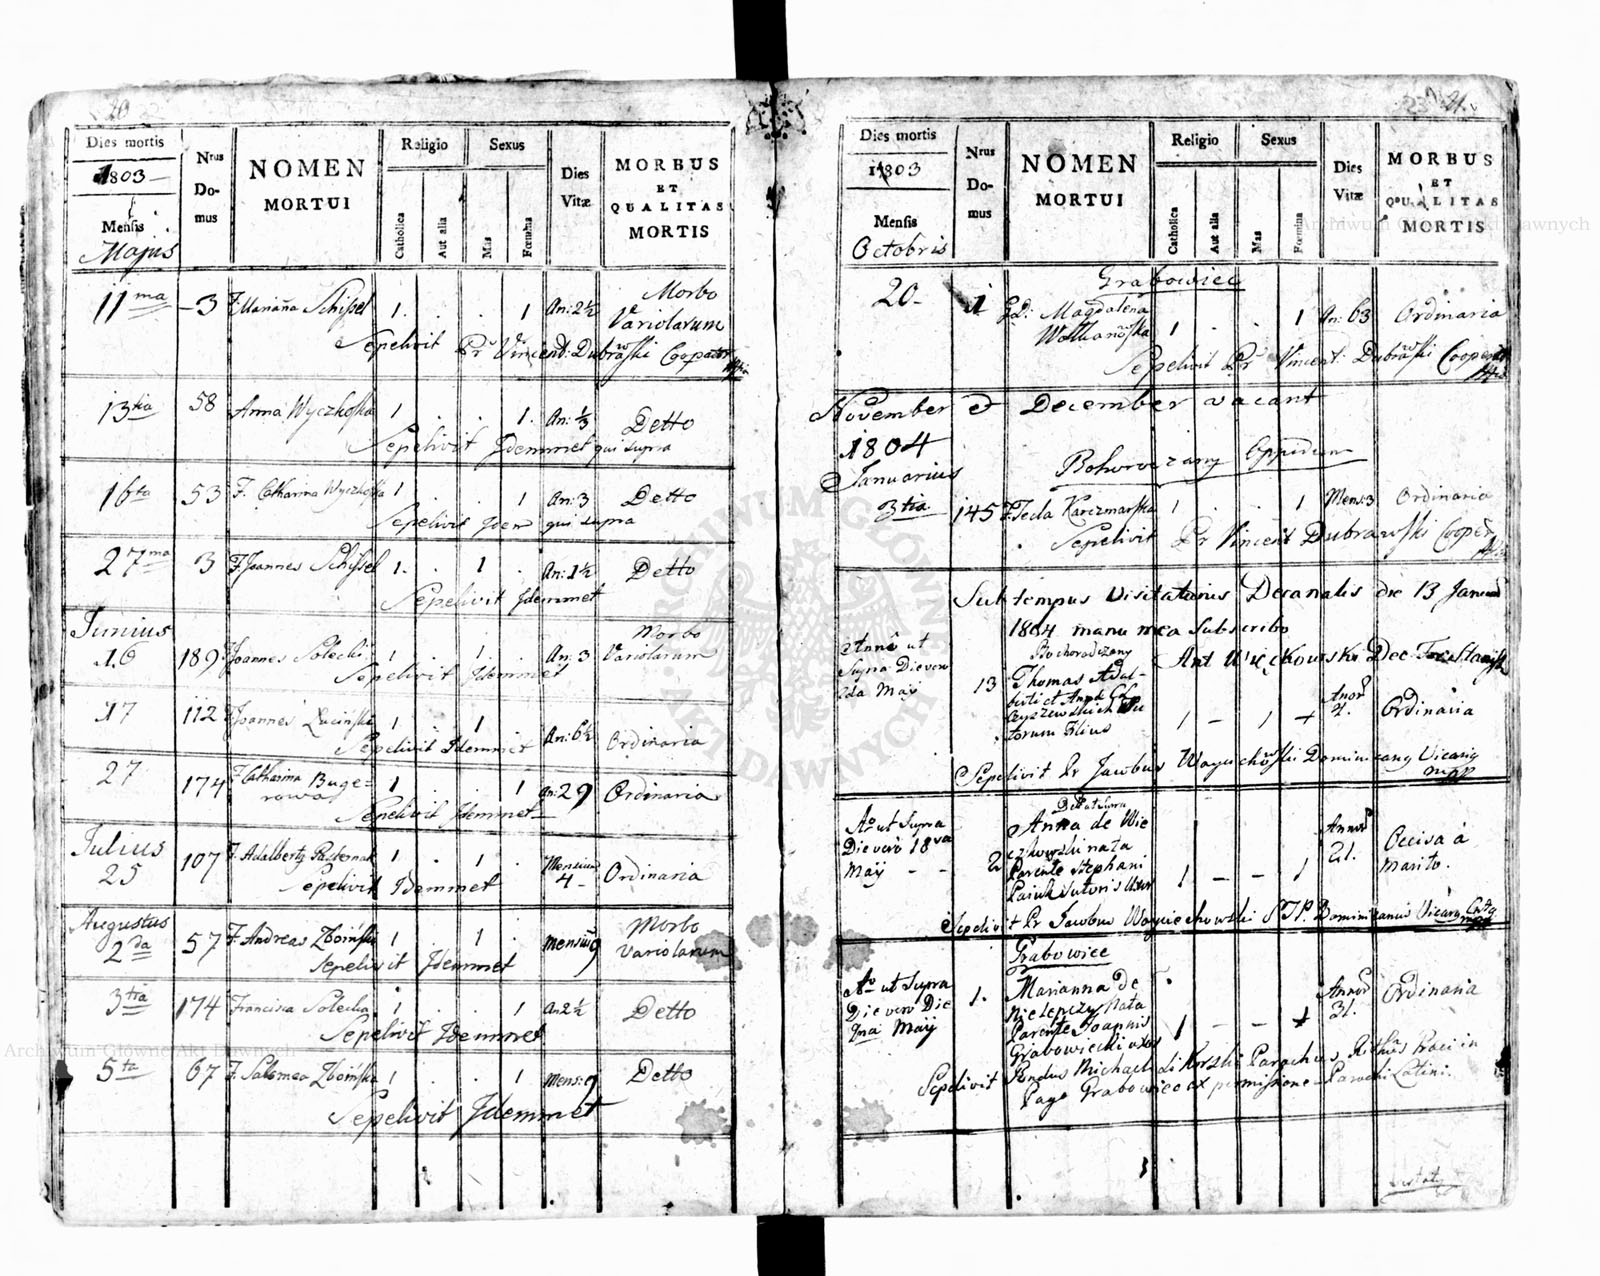 20
Dies mortis
1803
Mensis
Majus
Nrus Domus
NOMEN MORTUI
Religio
Catholica
Aut alia
Sexus
Mas
Fœmina
Dies Vitæ
MORBUS ET QUALITAS MORTIS
11ma 3 F. Marianna Schissel 1 . . 1 An: 2½ Morbo Variolarum
Sepelivit Pr Vincent: Dubrawski Cooperator
13tia 58 Anna Wyczkoska 1 . . 1 An: ⅓ Detto
Sepelivit Idemmet qui supra
16ta 53 F. Catharina Wyczkoska 1 . . 1 An: 3 Detto
Sepelivit Idem qui supra
27ma 3 F. Joannes Schissel 1 . 1 . An: 1½ Detto
Sepelivit Idemmet
Junius
16 189 Joannes Solecki 1 . 1 . An: 3 Morbo Variolarum
Sepelivit Idemmet
17 112 Joannes Luciński 1 . 1 . An: 6½ Ordinaria
Sepelivit Idemmet
27 174 F. Catharina Bugerowa 1 . . 1 An: 29 Ordinaria
Sepelivit Idemmet
Julius
25 107 F. Adalbertg Pasternak 1 . 1 . Mensium 4 Ordinaria
Sepelivit Idemmet
Augustus
2da 57 F. Andreas Zboiński 1 . 1 . Mensium 9 Morbo Variolarum
Sepelivit Idemmet
3tia 174 Francisca Solecka 1 . . 1 An 2½ Detto
Sepelivit Idemmet
5ta 67 F. Salomea Zboińska 1 . . 1 Mens: 9 Detto
Sepelivit Idemmet
21
Dies mortis
1803
Mensis
Octobris
Nrus Domus
NOMEN MORTUI
Religio
Catholica
Aut alia
Sexus
Mas
Fœmina
Dies Vitæ
MORBUS ET QUALITAS MORTIS
Grabowiec
20 1 Magdalena 1 . . 1 An: 63 Ordinaria
Sepelivit Pr Vincent: Dubrawski Cooper
November et December vacant
1804
Januarius
Bohorodczany Oppidum
3tia 145 F. Tecla Karczmarska 1 . . 1 Mens: 3 Ordinaria
Sepelivit Pr Vincent Dubrawski Cooper
Sub tempus Visitationis Decanalis die 13 Januarii
1804 manu mea Subscribo
Ant Więckowski Dec
Bohorodczany
Anno ut Supra Die vero 2da Maij
13
Thomas Adalberti et
torum Filius
1 – 1 +
Annor 2. Ordinaria
Sepelivit Pr Jacobus Dominicang Vicarig mpp
Ao ut Supra Die vero 18va Maij
2
Anna de
nata Parente Stephani
1 – – 1
Annor 21. Occisa à marito.
Sepelivit Pr Jacobus Woyciechowski Dominicanus Vicarig
Grabowiec
Ao ut Supra Die vero Die Maij
1.
Marianna de
Nata Parente Joannis Grabowiecki uxor
1 – – +
Annor 31. Ordinaria
Sepelivit Michael Parochus in
Pago Grabowiec ex permissione Parochi Latini.
ARCHIWUM GŁÓWNE AKT DAWNYCH
Archiwum Główne Akt Dawnych
Archiwum Główne Akt Dawnych